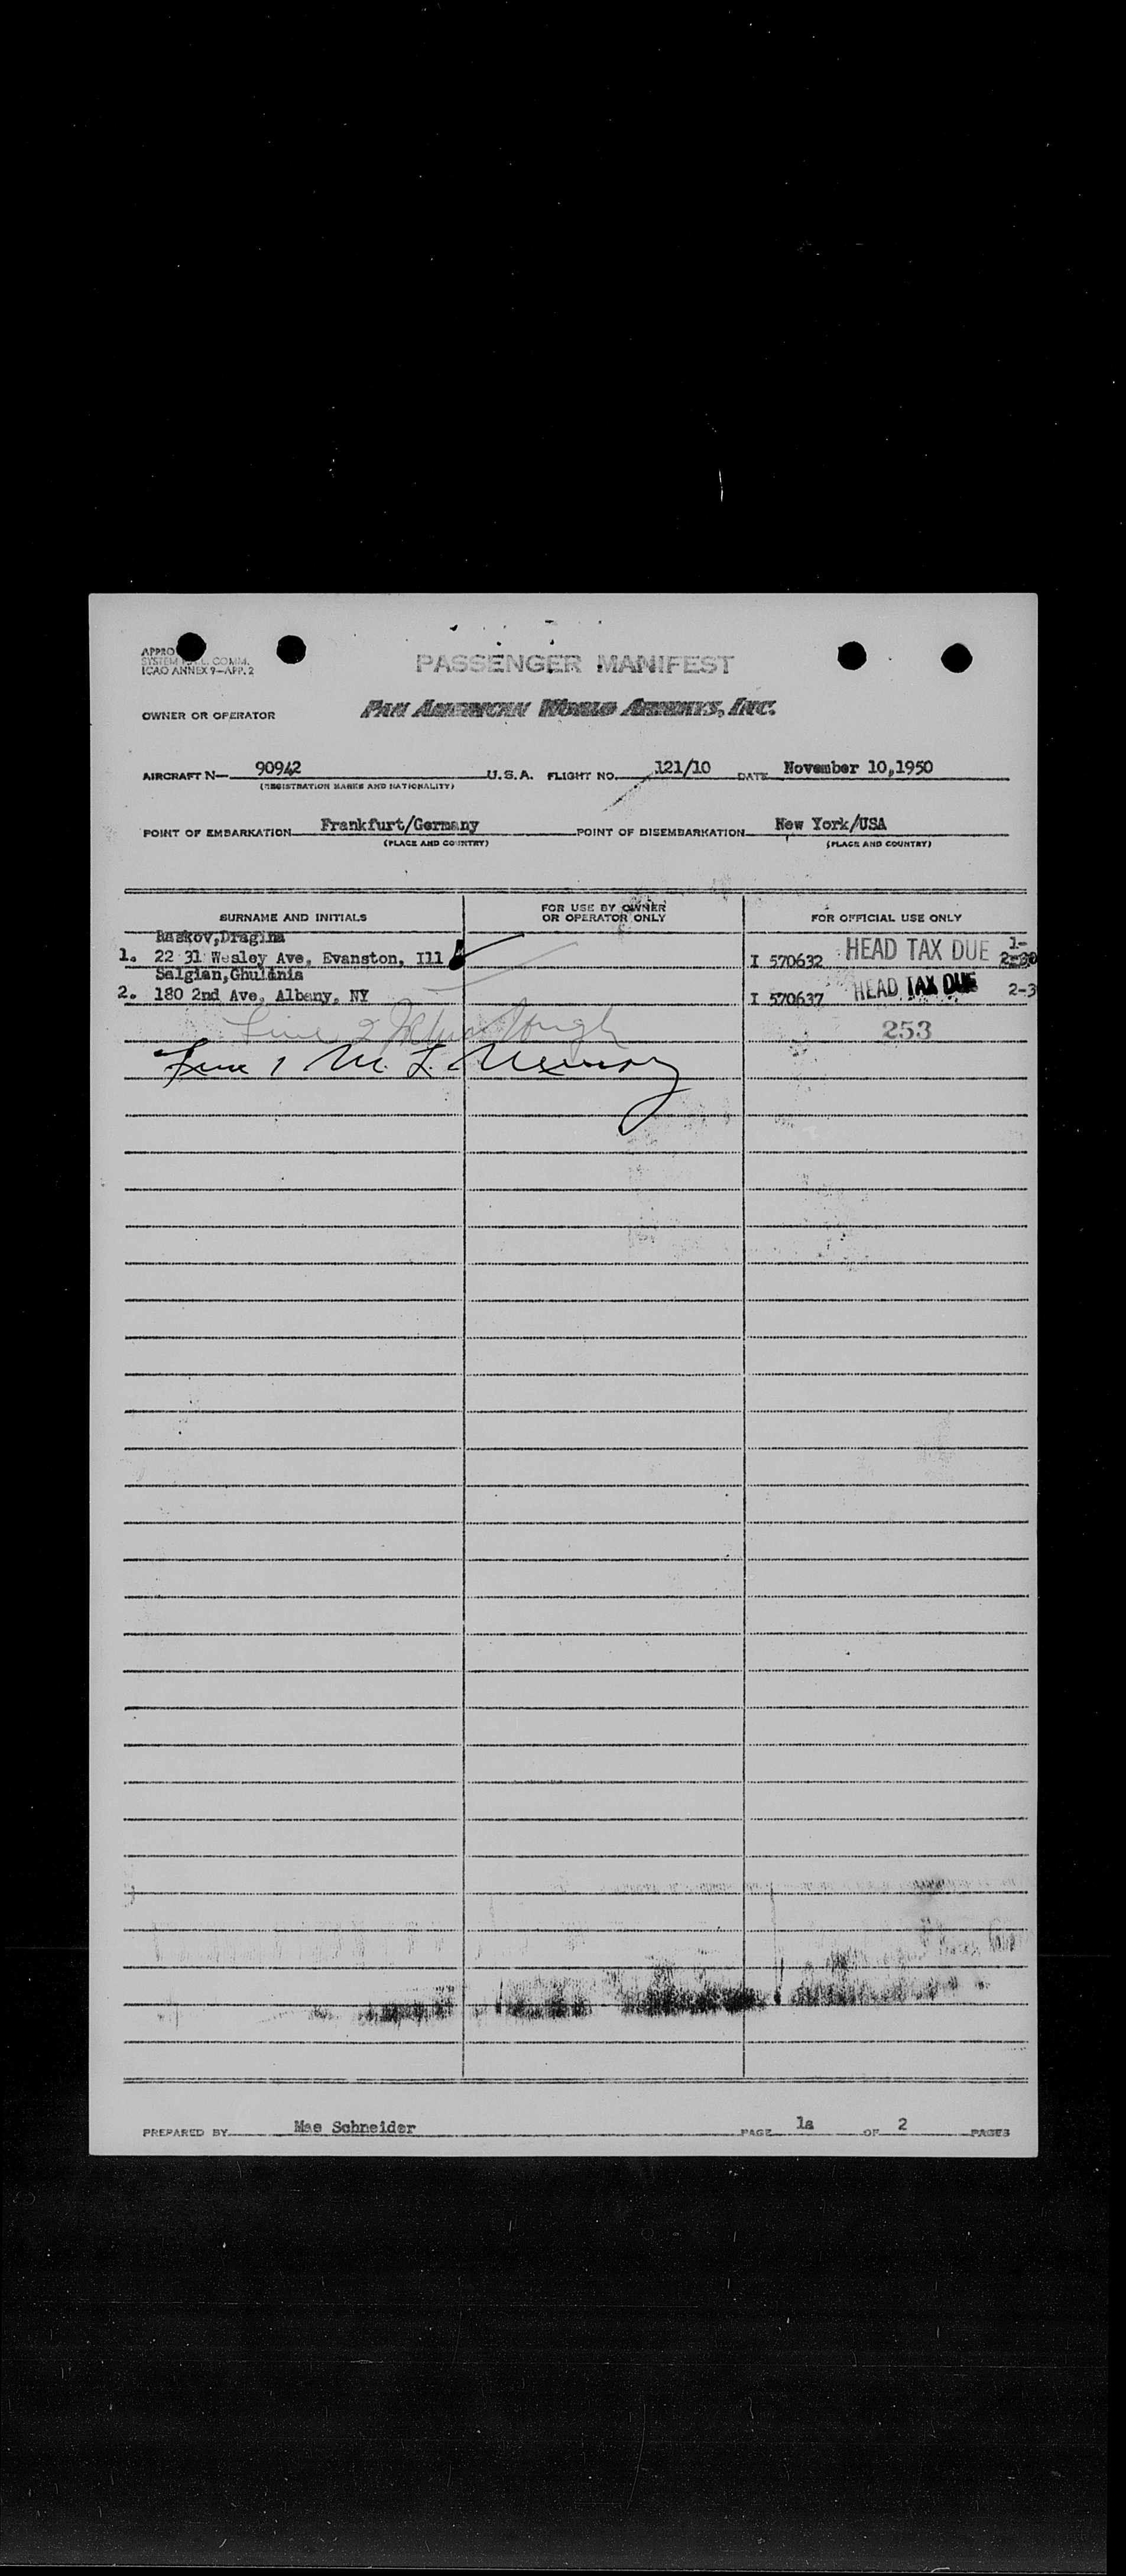 PASSENGER MANIFEST
SYSTEM COMM.
ICAO ANNEX 9—APP. 2
OWNER OR OPERATOR PAN AMERICAN WORLD AIRWAYS, INC.
AIRCRAFT N— 90942 U.S.A. FLIGHT NO. 121/10 DATE November 10,1950
(REGISTRATION MARKS AND NATIONALITY)
POINT OF EMBARKATION Frankfurt/Germany POINT OF DISEMBARKATION New York/USA
(PLACE AND COUNTRY) (PLACE AND COUNTRY)
SURNAME AND INITIALS FOR USE BY OWNER OR OPERATOR ONLY FOR OFFICIAL USE ONLY
Raskov,Dragina
1. 22 31 Wesley Ave, Evanston, Ill I 570632 HEAD TAX DUE 1-
Salgian,Ghulania
2. 180 2nd Ave, Albany, NY I 570637 HEAD TAX DUE 2-3
Line 2 253
Line 1 M. L.
PREPARED BY Mae Schneider PAGE 1a OF 2 PAGES